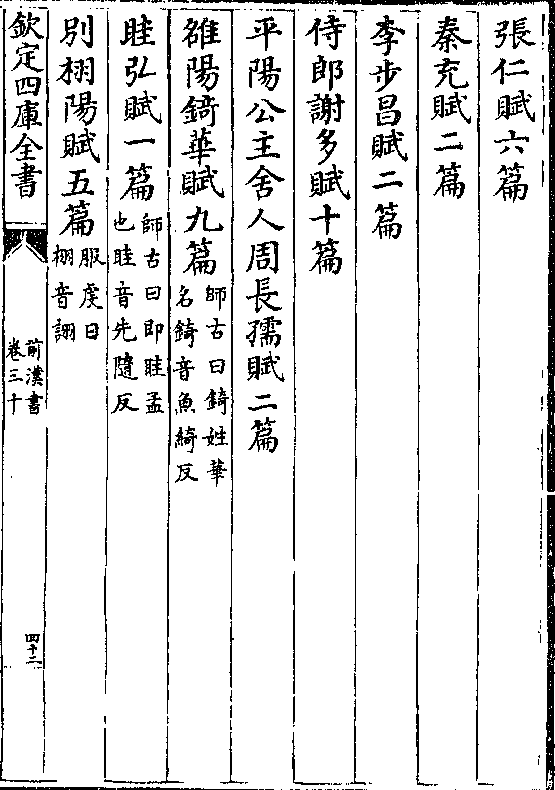 張仁賦六篇
秦充賦二篇
李步昌賦二篇
侍郎謝多賦十篇
平陽公主舍人周長孺賦二篇
雒陽錡華賦九篇師古曰錡姓華名錡音魚綺反
眭弘賦一篇師古曰即眭孟也眭音先隨反
別栩陽賦五篇服虔曰栩音詡
欽定四庫全書
前漢書
卷三十
四十二